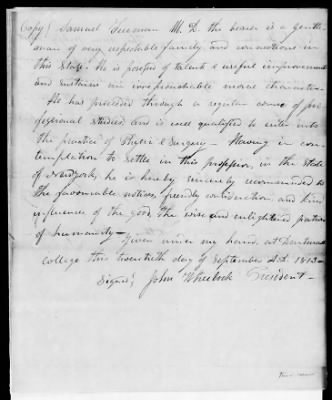 (Copy) Samuel Freeman M. D. the bearer is a gentle-
man of very respectable family and connections in
this State. He is possessed of talents & useful improvement
and sustains an irreproachable moral character.
He has proceeded through a regular course of pro
fessional studies, and is well qualified to enter into
the practice of Physic & Surgery – Having in con-
templation to settle in this profession, in the State
of , he is hereby sincerely recommended to
the favourable notices, friendly consideration, and kind
influence of the good, the wise and enlightened patrons
of humanity –
Given under my hand, at Dartmouth
college this twentieth day of September A.D. 1813 –
Signed, John Wheelock President –